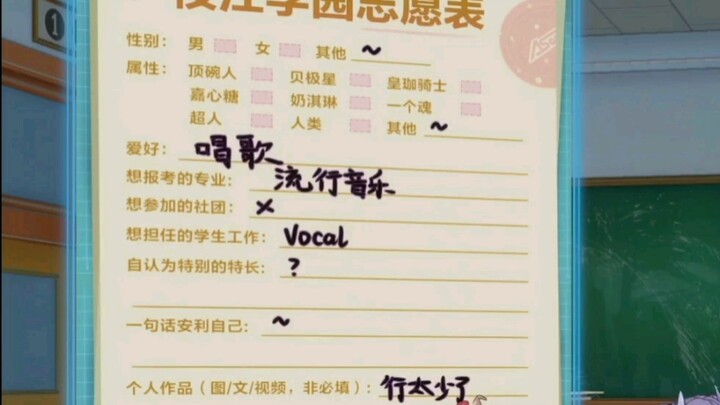 枝江学园志愿表
性别： 男 女 其他 ~
属性： 顶碗人 贝极星 皇珈骑士
嘉心糖 奶淇琳 一个魂
超人 人类 其他 ~
爱好： 唱歌
想报考的专业： 流行音乐
想参加的社团： ×
想担任的学生工作： Vocal
自认为特别的特长： ?
一句话安利自己： ~
个人作品（图/文/视频，非必填）： 行太少了